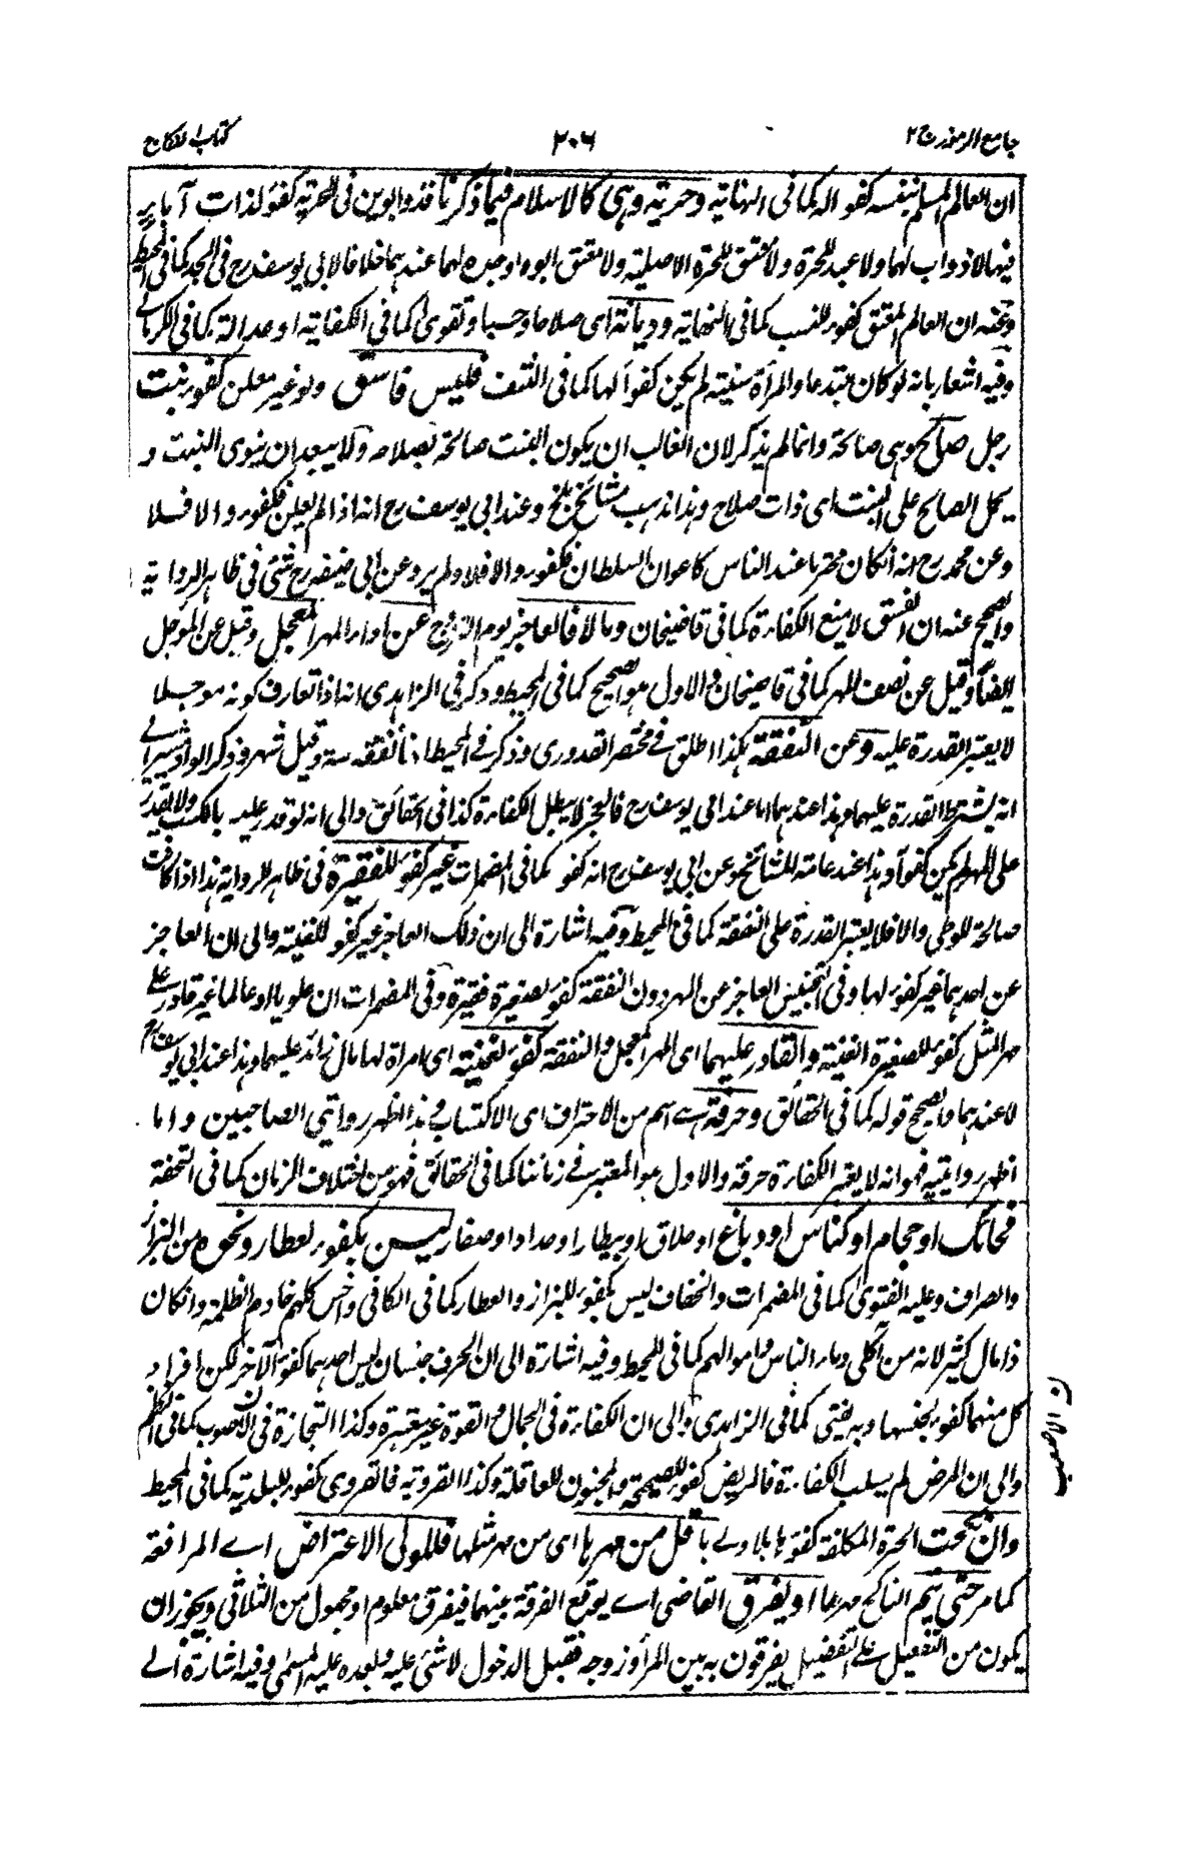 جامع الرموز ج ۲
۲۰۶
كتاب النكاح
ان العالم المسلم بنفسه كفو اله كما فى النهاية وحرية وهى كالاسلام فيما ذكرنا فذو ابوين فى الحرية كفو لذات آباء
فيها لا ذو اب لهما ولا عبد للحرة ولا معتق للحرة الاصلية ولا معتق ابوه او جده لهما عندهما خلافا لابى يوسف رح فى الجد كما فى المحيط
وعنه ان العالم المعتق كفو للنسب كما فى النهاية وديانة اى صلاحا وحسبا وتقوى كما فى الكفاية او عدالة كما فى الكرمانى
وفيه اشعار بانه لو كان مبتدعا والمرأة سنية لم يكن كفوا لها كما فى النتف فليس فاسق ولو غير معلن كفو بنت
رجل صالح وهى صالحة وانما لم يذكر لان الغالب ان يكون البنت صالحة بصلاحه ولا يبعد ان ينوى البنت و
يحمل الصالح على البنت اى ذات صلاح وهذا مذهب مشائخ بلخ وعند ابى يوسف رح انه اذا لم يعلن فكفو والا فلا
وعن محمد رح انه ان كان محترما عند الناس كاعوان السلطان فكفو والا فلا ولم يرو عن ابى حنيفة رح شئ فى ظاهر الرواية
والصحيح عنه ان الفسق لا يمنع الكفاءة كما فى قاضيخان ومالا فالعاجز يوم التزوج عن اداء المهر المعجل وقيل عن المؤجل
ايضا وقيل عن نصف المهر كما فى قاضيخان والاول هو الصحيح كما فى المحيط وذكر فى الزاهدى انه اذا تعارف كونه مؤجلا
لا يعتبر القدرة عليه وعن النفقة هكذا اطلق فى مختصر القدورى وذكر فى المحيط انها نفقة ستة وقيل شهر وذكر الوانشيرانى
انه يشترط القدرة عليهما وهذا عندهما اما عند ابى يوسف رح فالعجز لا يبطل الكفاءة كذا فى الحقائق والى انه لو قدر عليه بالكسب ولا يقدر
على المهر لم يكن كفوا وهذا عند عامة المشائخ وعن ابى يوسف رح انه كفو كما فى المضمرات غير كفو للفقيرة فى ظاهر الرواية هذا اذا كانت
صالحة للوطى والا فلا يعتبر القدرة على النفقة كما فى المحيط وفيه اشارة الى ان ذلك العاجز غير كفو للغنية والى ان العاجز
عن احدهما غير كفو لها وفى التجنيس العاجز عن المهر دون النفقة كفو لصغيرة فقيرة وفى المضمرات ان علويا او عالما غير قادر على
مهر المثل كفو للصغيرة الغنية والقادر عليهما اى المهر المعجل والنفقة كفو لغنية اى امرأة لها مال زائد عليهما وهذا عند ابى يوسف رح
لا عندهما والصحيح قوله كما فى الحقائق وحرفة هے اسم من الاحتراف اى الاكتساب وهذا اظهر روايتى الصاحبين واما
اظهر روايتيه فهو انه لا يعتبر الكفاءة حرفة والاول هو المعتبر فى زماننا كما فى الحقائق فهو من اختلاف الزمان كما فى التحفة
فحائك او حجام او كناس او دباغ او حلاق او بيطار او حداد او صفار ليس بكفو لعطار ونحوه من البزاز
والصراف وعليه الفتوى كما فى المضمرات والخفاف ليس بكفو للبزاز والعطار كما فى الكافى واخس كلهم خادم الظلمة وان كان
ذا مال كثير لانه من آكلى دماء الناس واموالهم كما فى المحيط وفيه اشارة الى ان الحرف جنسان ليس احدهما كفو الآخر لكن افراد
كل منهما كفو بجنسها وبه يفتى كما فى الزاهدى والى ان الكفاءة فى الجمال والقوة غير معتبرة وكذا التجارة فى الاصوب كما فى النظم
والى ان المرض لم يسلب الكفاءة فالمريض كفو للصحيحة والمجنون للعاقلة وكذا القروية فالقروى كفو للبلدية كما فى المحيط
وان نكحت الحرة المكلفة كفوا بلا ولى باقل من مهرها اى من مهر مثلها فللولى الاعتراض اے المرافعة
كما مر حتى يتم الناكح مهرها او يفرق القاضى اے يوقع الفرقة بينهما فيفرق معلوم او مجهول من الثلاثى ويجوز ان
يكون من التفعيل على التفضيل يفرقون به بين المرأ وزوجه فقبل الدخول لا شئ عليه وبعده عليه المسمى وفيه اشارة الى